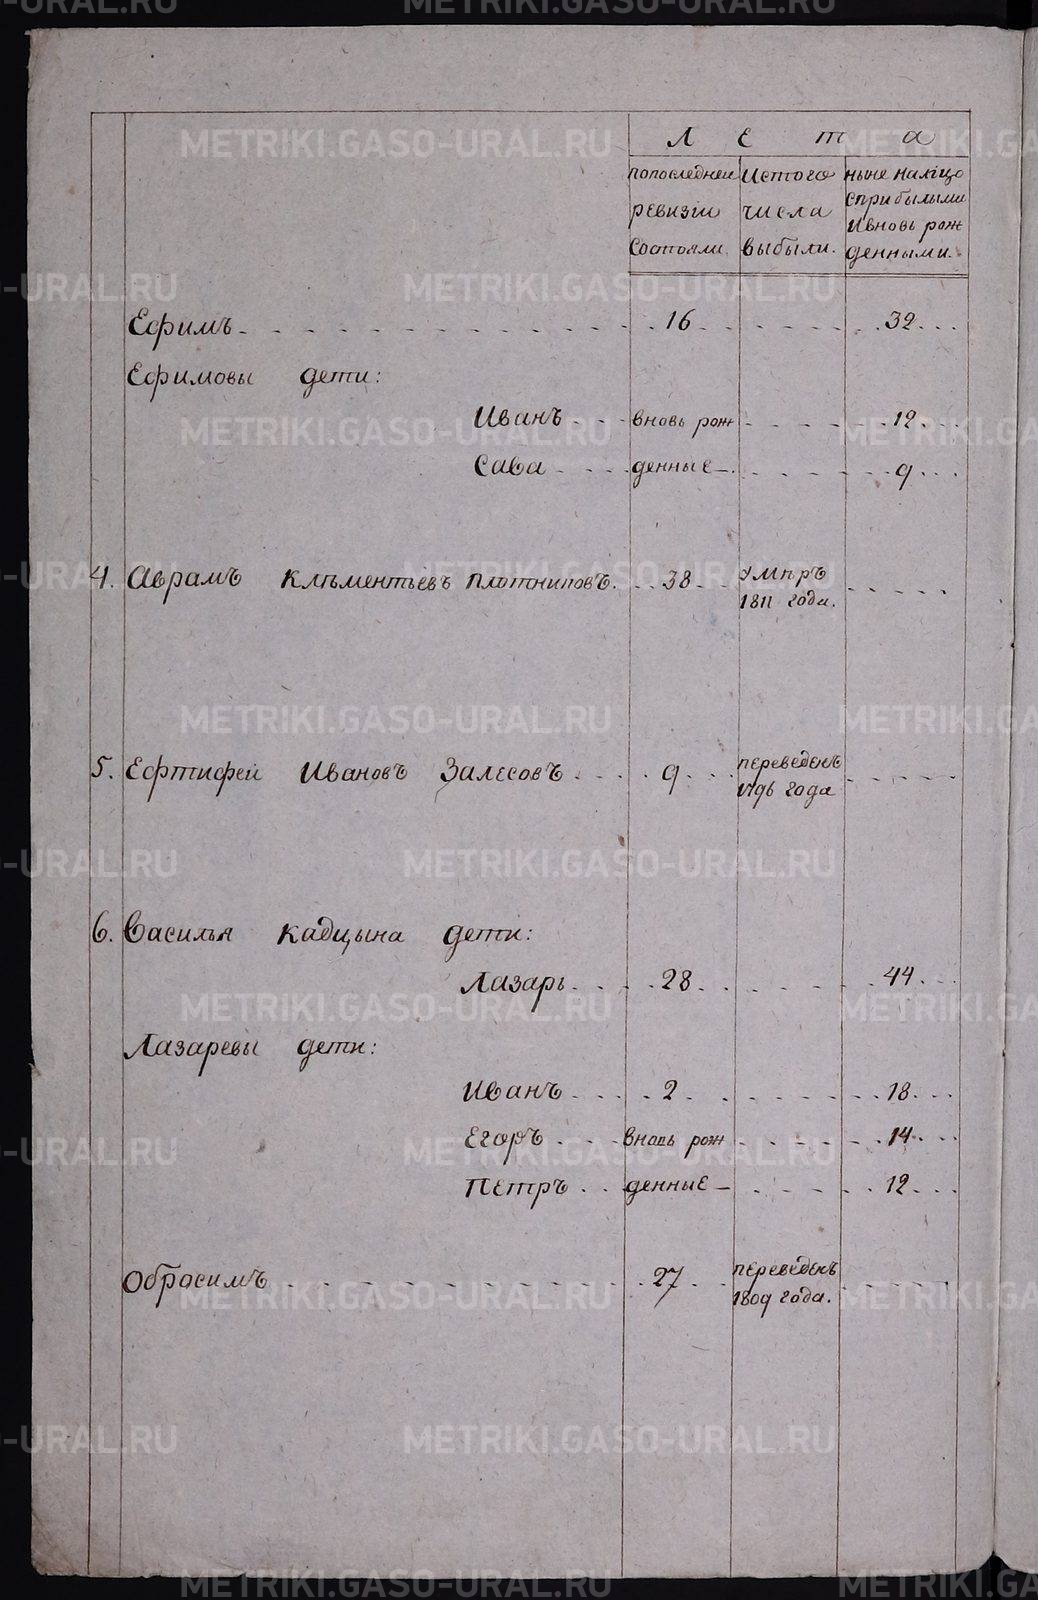 Лета
попоследней ревизiи состояли.
Истого числа выбыли.
ныне налiцо сприбылыми ивновь рож денными.
Ефимъ 16 32
Ефимовы дети:
Иванъ вновь рож 12
Сава денные 9
4. Аврамъ Клѣментьевъ Плотниковъ. 38 умѣръ 1811 года.
5. Ефтифей Ивановъ Залесовъ 9 переведенъ 1796 года
6. Василья Кадцына дети:
Лазарь 28 44
Лазаревы дети:
Иванъ 2 18
Егоръ вновь рож 14
Петръ денные 12
Обросимъ 27 переведенъ 1809 года.
METRIKI.GASO-URAL.RU